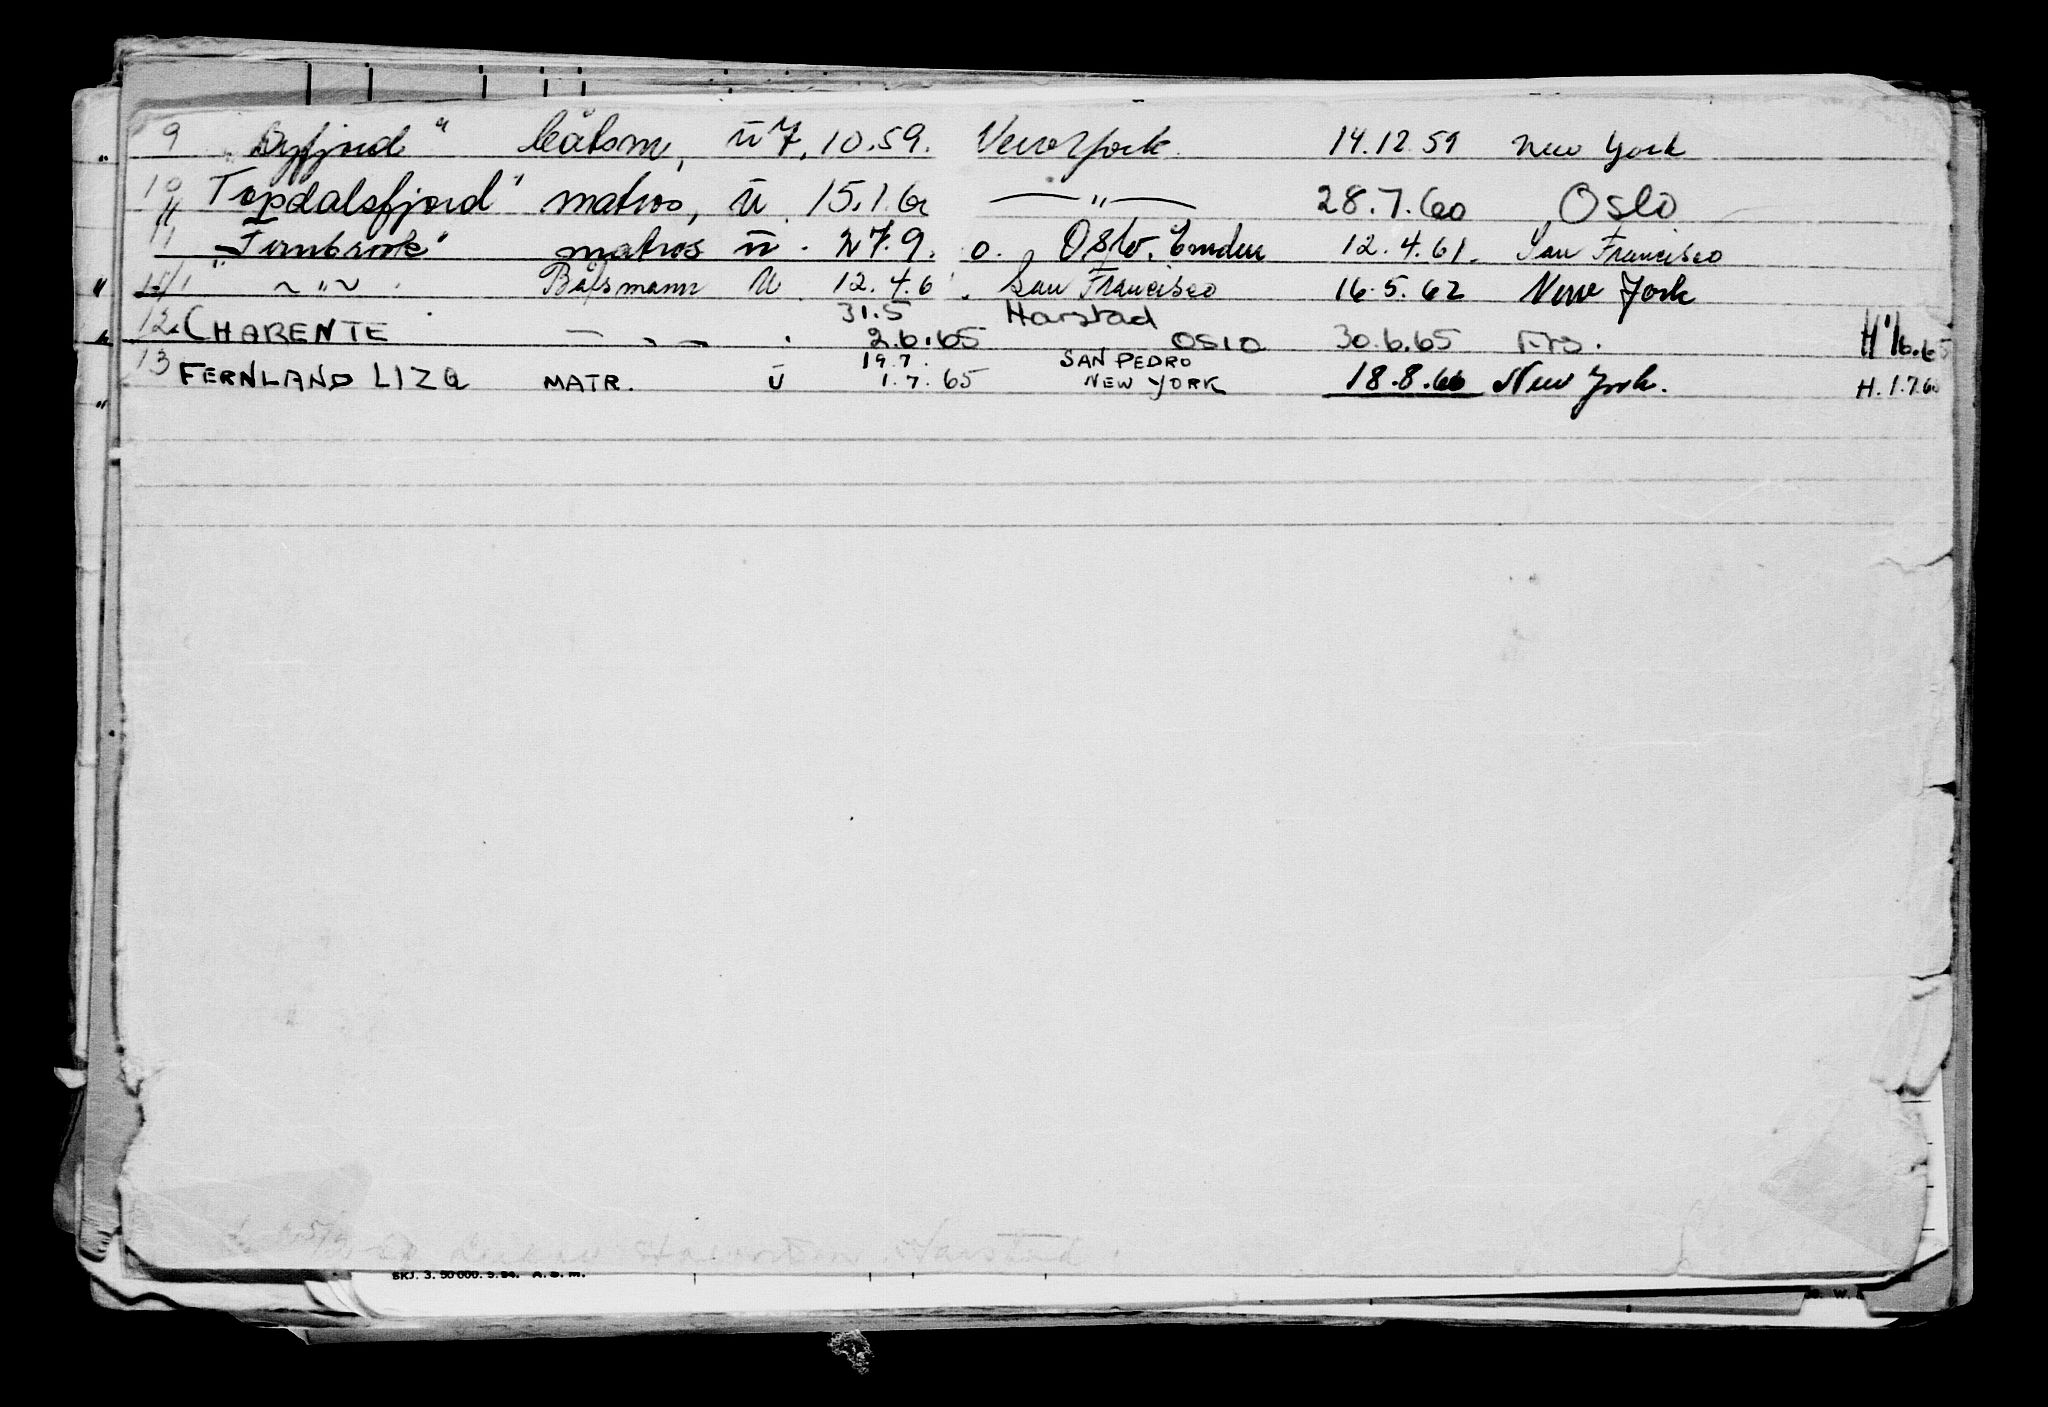 9 "Byfjord" båtsm, ū 7.10.59. New York 14.12.59 New York
10 Topdalsfjord" matros, ū 15.1.60 —"— 28.7.60 Oslo
11 "Fernbrook" matros ū. 27.9. o. Oslo. Emden 12.4.61. San Francisco
" ~"~ Båtsmann U 12.4.6 San Francisco 16.5.62 New York
31.5 Harstad
12. CHARENTE — " — 2.6.65 OSLO 30.6.65 H. 1/6.65
19.7. SAN PEDRO
13 FERNLAND LIZQ MATR. Ū 1.7.65 NEW YORK 18.8.66 New York. H. 1.7.65
Harstad
SKJ. 3. 50 000. 5.54. A. S. M.